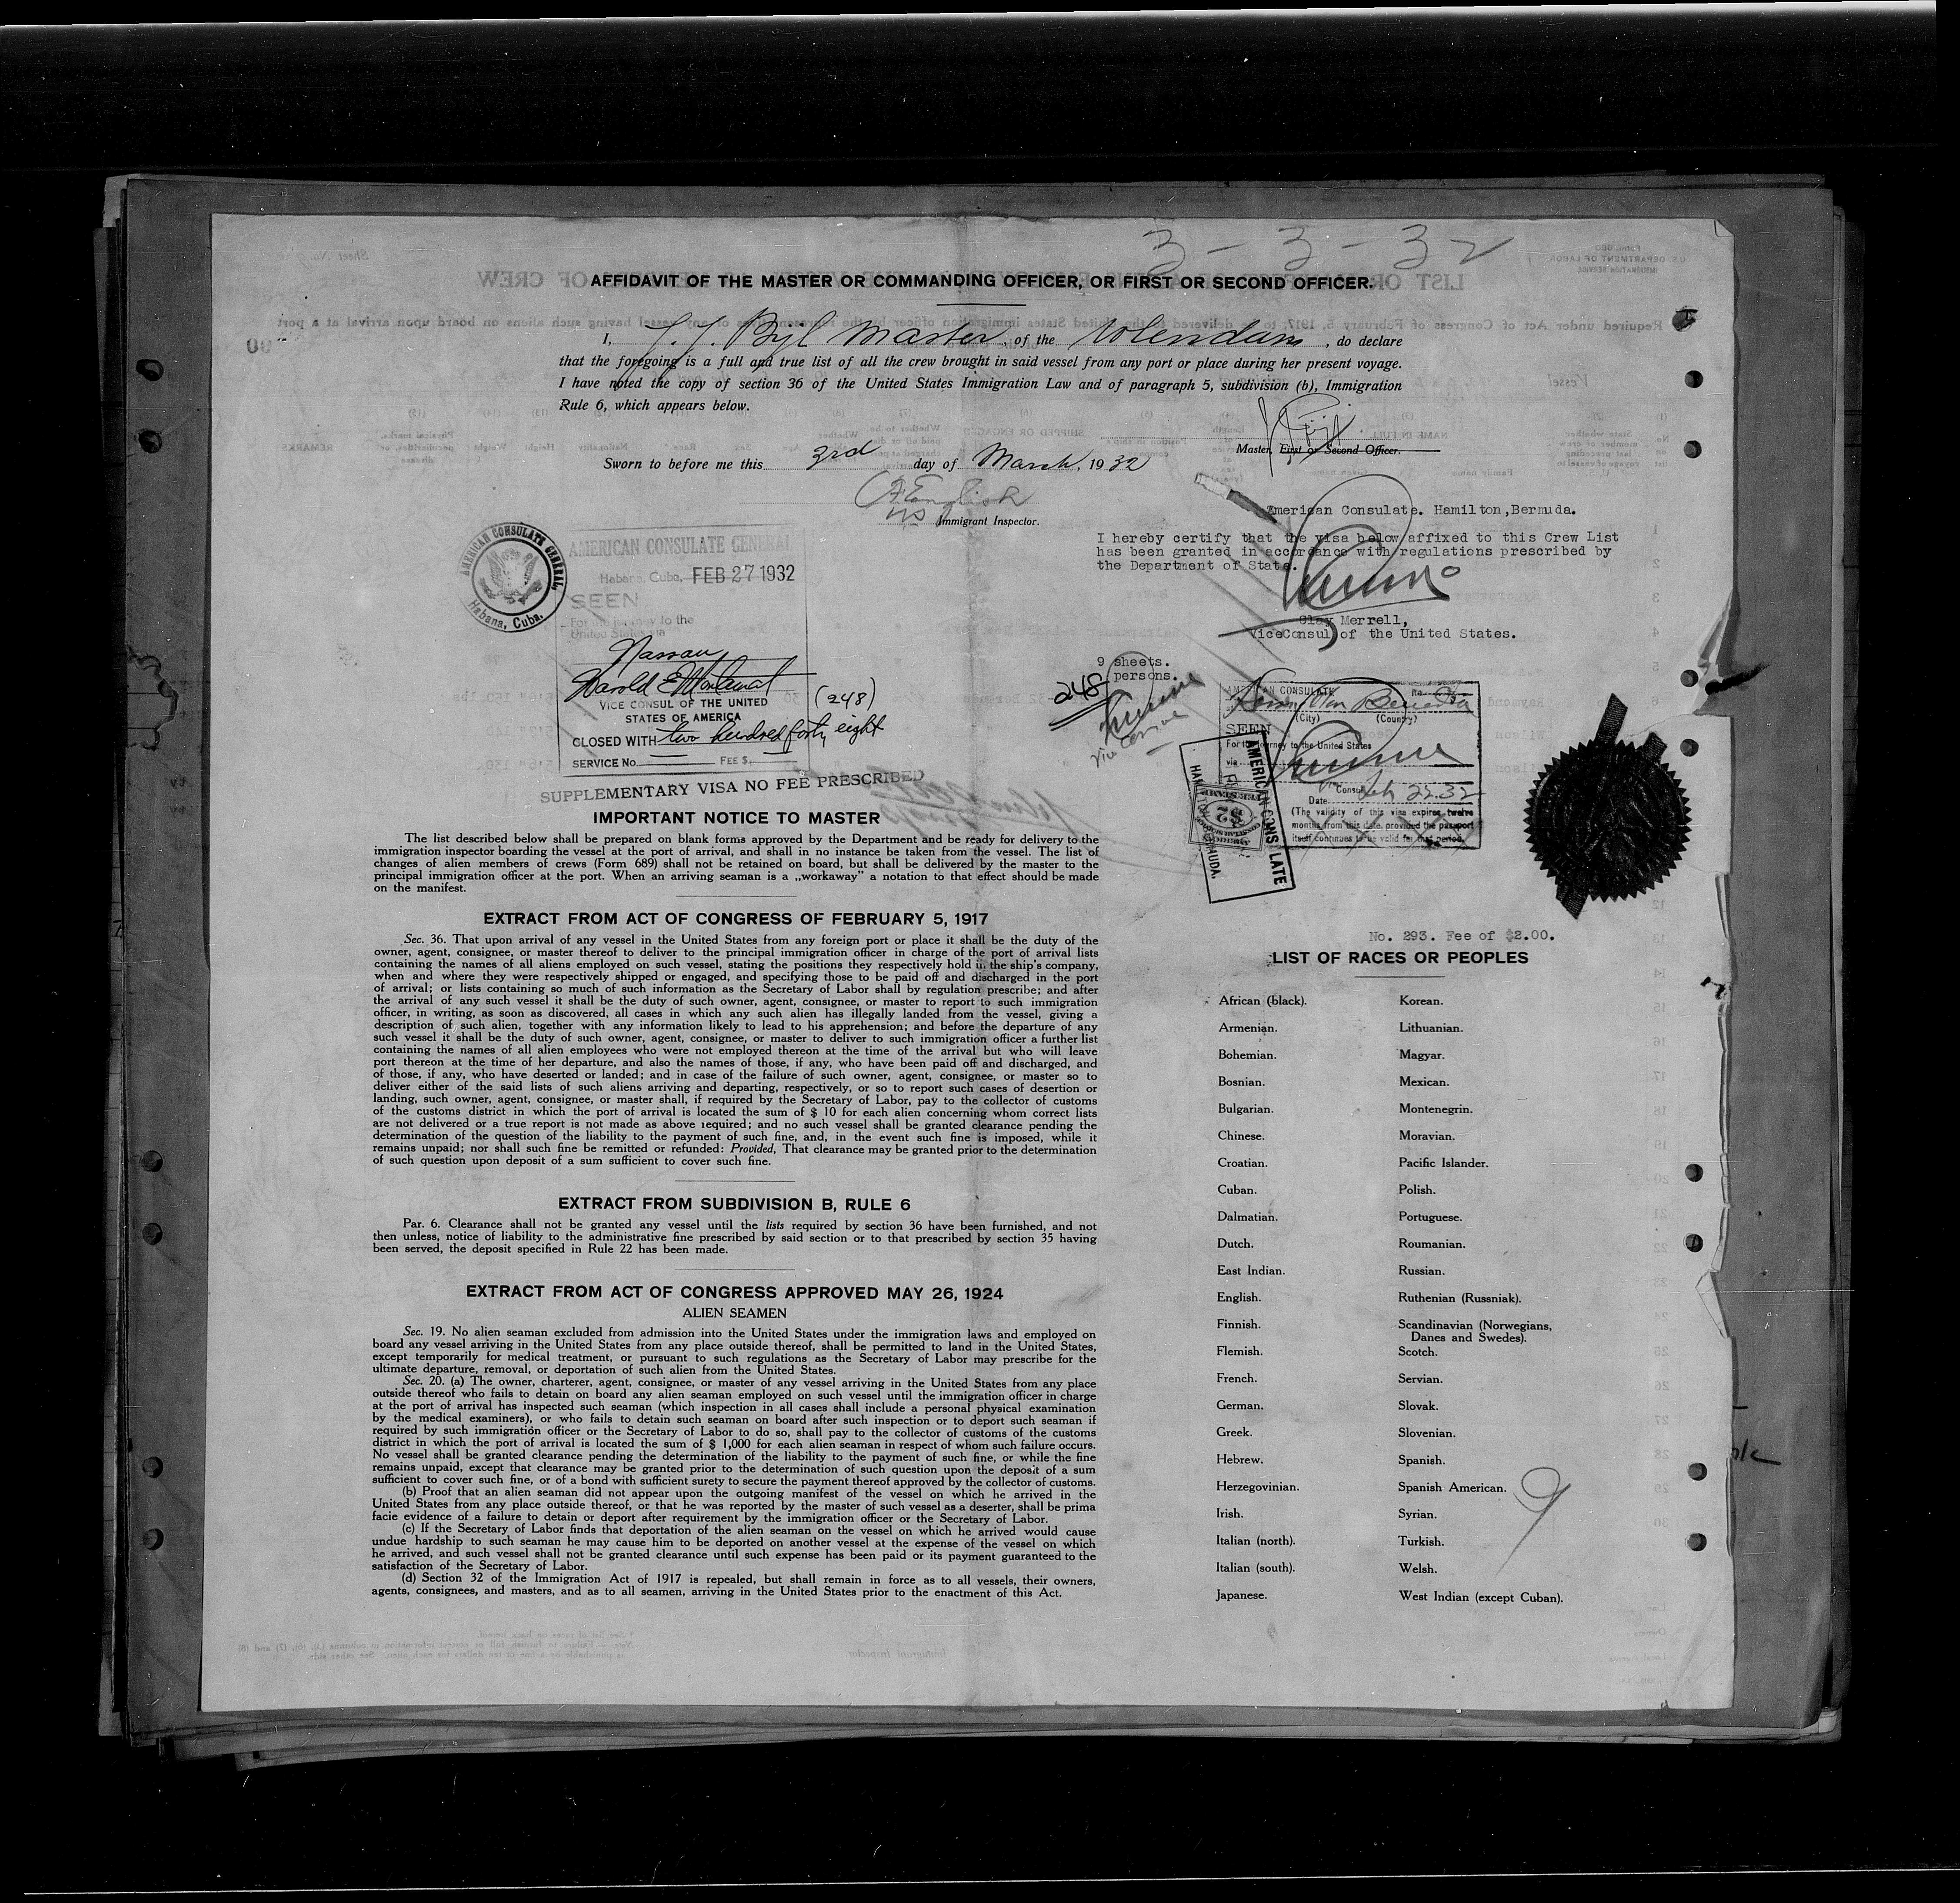 3-3-32
AFFIDAVIT OF THE MASTER OR COMMANDING OFFICER, OR FIRST OR SECOND OFFICER.
I, J. J. Bijl Master, of the Volendam, do declare
that the foregoing is a full and true list of all the crew brought in said vessel from any port or place during her present voyage.
I have noted the copy of section 36 of the United States Immigration Law and of paragraph 5, subdivision (b), Immigration
Rule 6, which appears below.
Master, First or Second Officer.
Sworn to before me this 3rd day of March, 1932
Immigrant Inspector.
AMERICAN CONSULATE GENERAL
Habana, Cuba.
AMERICAN CONSULATE GENERAL
Habana, Cuba, FEB 27 1932
SEEN
For the journey to the
United States via
Nassau
VICE CONSUL OF THE UNITED
STATES OF AMERICA
(248)
CLOSED WITH two hundred forty eight
SERVICE No. FEE $
SUPPLEMENTARY VISA NO FEE PRESCRIBED
American Consulate. Hamilton,Bermuda.
I hereby certify that the visa below affixed to this Crew List
has been granted in accordance with regulations prescribed by
the Department of State.
Clay Merrell,
ViceConsul of the United States.
9 sheets.
248 persons.
AMERICAN CONSULATE No.
(City) (Country)
SEEN
For the journey to the United States
via
Vice Consul
Date Feb 22.32
(The validity of this visa expires twelve
months from this date, provided the passport
itself continues to be valid for that period.
AMERICAN CONSULATE
HAMILTON, BERMUDA.
$2
No. 293. Fee of $2.00.
IMPORTANT NOTICE TO MASTER
The list described below shall be prepared on blank forms approved by the Department and be ready for delivery to the
immigration inspector boarding the vessel at the port of arrival, and shall in no instance be taken from the vessel. The list of
changes of alien members of crews (Form 689) shall not be retained on board, but shall be delivered by the master to the
principal immigration officer at the port. When an arriving seaman is a „workaway” a notation to that effect should be made
on the manifest.
EXTRACT FROM ACT OF CONGRESS OF FEBRUARY 5, 1917
Sec. 36. That upon arrival of any vessel in the United States from any foreign port or place it shall be the duty of the
owner, agent, consignee, or master thereof to deliver to the principal immigration officer in charge of the port of arrival lists
containing the names of all aliens employed on such vessel, stating the positions they respectively hold in the ship's company,
when and where they were respectively shipped or engaged, and specifying those to be paid off and discharged in the port
of arrival; or lists containing so much of such information as the Secretary of Labor shall by regulation prescribe; and after
the arrival of any such vessel it shall be the duty of such owner, agent, consignee, or master to report to such immigration
officer, in writing, as soon as discovered, all cases in which any such alien has illegally landed from the vessel, giving a
description of such alien, together with any information likely to lead to his apprehension; and before the departure of any
such vessel it shall be the duty of such owner, agent, consignee, or master to deliver to such immigration officer a further list
containing the names of all alien employees who were not employed thereon at the time of the arrival but who will leave
port thereon at the time of her departure, and also the names of those, if any, who have been paid off and discharged, and
of those, if any, who have deserted or landed; and in case of the failure of such owner, agent, consignee, or master so to
deliver either of the said lists of such aliens arriving and departing, respectively, or so to report such cases of desertion or
landing, such owner, agent, consignee, or master shall, if required by the Secretary of Labor, pay to the collector of customs
of the customs district in which the port of arrival is located the sum of $ 10 for each alien concerning whom correct lists
are not delivered or a true report is not made as above required; and no such vessel shall be granted clearance pending the
determination of the question of the liability to the payment of such fine, and, in the event such fine is imposed, while it
remains unpaid; nor shall such fine be remitted or refunded: Provided, That clearance may be granted prior to the determination
of such question upon deposit of a sum sufficient to cover such fine.
EXTRACT FROM SUBDIVISION B, RULE 6
Par. 6. Clearance shall not be granted any vessel until the lists required by section 36 have been furnished, and not
then unless, notice of liability to the administrative fine prescribed by said section or to that prescribed by section 35 having
been served, the deposit specified in Rule 22 has been made.
EXTRACT FROM ACT OF CONGRESS APPROVED MAY 26, 1924
ALIEN SEAMEN
Sec. 19. No alien seaman excluded from admission into the United States under the immigration laws and employed on
board any vessel arriving in the United States from any place outside thereof, shall be permitted to land in the United States,
except temporarily for medical treatment, or pursuant to such regulations as the Secretary of Labor may prescribe for the
ultimate departure, removal, or deportation of such alien from the United States.
Sec. 20. (a) The owner, charterer, agent, consignee, or master of any vessel arriving in the United States from any place
outside thereof who fails to detain on board any alien seaman employed on such vessel until the immigration officer in charge
at the port of arrival has inspected such seaman (which inspection in all cases shall include a personal physical examination
by the medical examiners), or who fails to detain such seaman on board after such inspection or to deport such seaman if
required by such immigration officer or the Secretary of Labor to do so, shall pay to the collector of customs of the customs
district in which the port of arrival is located the sum of $ 1,000 for each alien seaman in respect of whom such failure occurs.
No vessel shall be granted clearance pending the determination of the liability to the payment of such fine, or while the fine
remains unpaid, except that clearance may be granted prior to the determination of such question upon the deposit of a sum
sufficient to cover such fine, or of a bond with sufficient surety to secure the payment thereof approved by the collector of customs.
(b) Proof that an alien seaman did not appear upon the outgoing manifest of the vessel on which he arrived in the
United States from any place outside thereof, or that he was reported by the master of such vessel as a deserter, shall be prima
facie evidence of a failure to detain or deport after requirement by the immigration officer or the Secretary of Labor.
(c) If the Secretary of Labor finds that deportation of the alien seaman on the vessel on which he arrived would cause
undue hardship to such seaman he may cause him to be deported on another vessel at the expense of the vessel on which
he arrived, and such vessel shall not be granted clearance until such expense has been paid or its payment guaranteed to the
satisfaction of the Secretary of Labor.
(d) Section 32 of the Immigration Act of 1917 is repealed, but shall remain in force as to all vessels, their owners,
agents, consignees, and masters, and as to all seamen, arriving in the United States prior to the enactment of this Act.
LIST OF RACES OR PEOPLES
African (black). Korean.
Armenian. Lithuanian.
Bohemian. Magyar.
Bosnian. Mexican.
Bulgarian. Montenegrin.
Chinese. Moravian.
Croatian. Pacific Islander.
Cuban. Polish.
Dalmatian. Portuguese.
Dutch. Roumanian.
East Indian. Russian.
English. Ruthenian (Russniak).
Finnish. Scandinavian (Norwegians,
Danes and Swedes).
Flemish. Scotch.
French. Servian.
German. Slovak.
Greek. Slovenian.
Hebrew. Spanish.
Herzegovinian. Spanish American.
Irish. Syrian.
Italian (north). Turkish.
Italian (south). Welsh.
Japanese. West Indian (except Cuban).
9